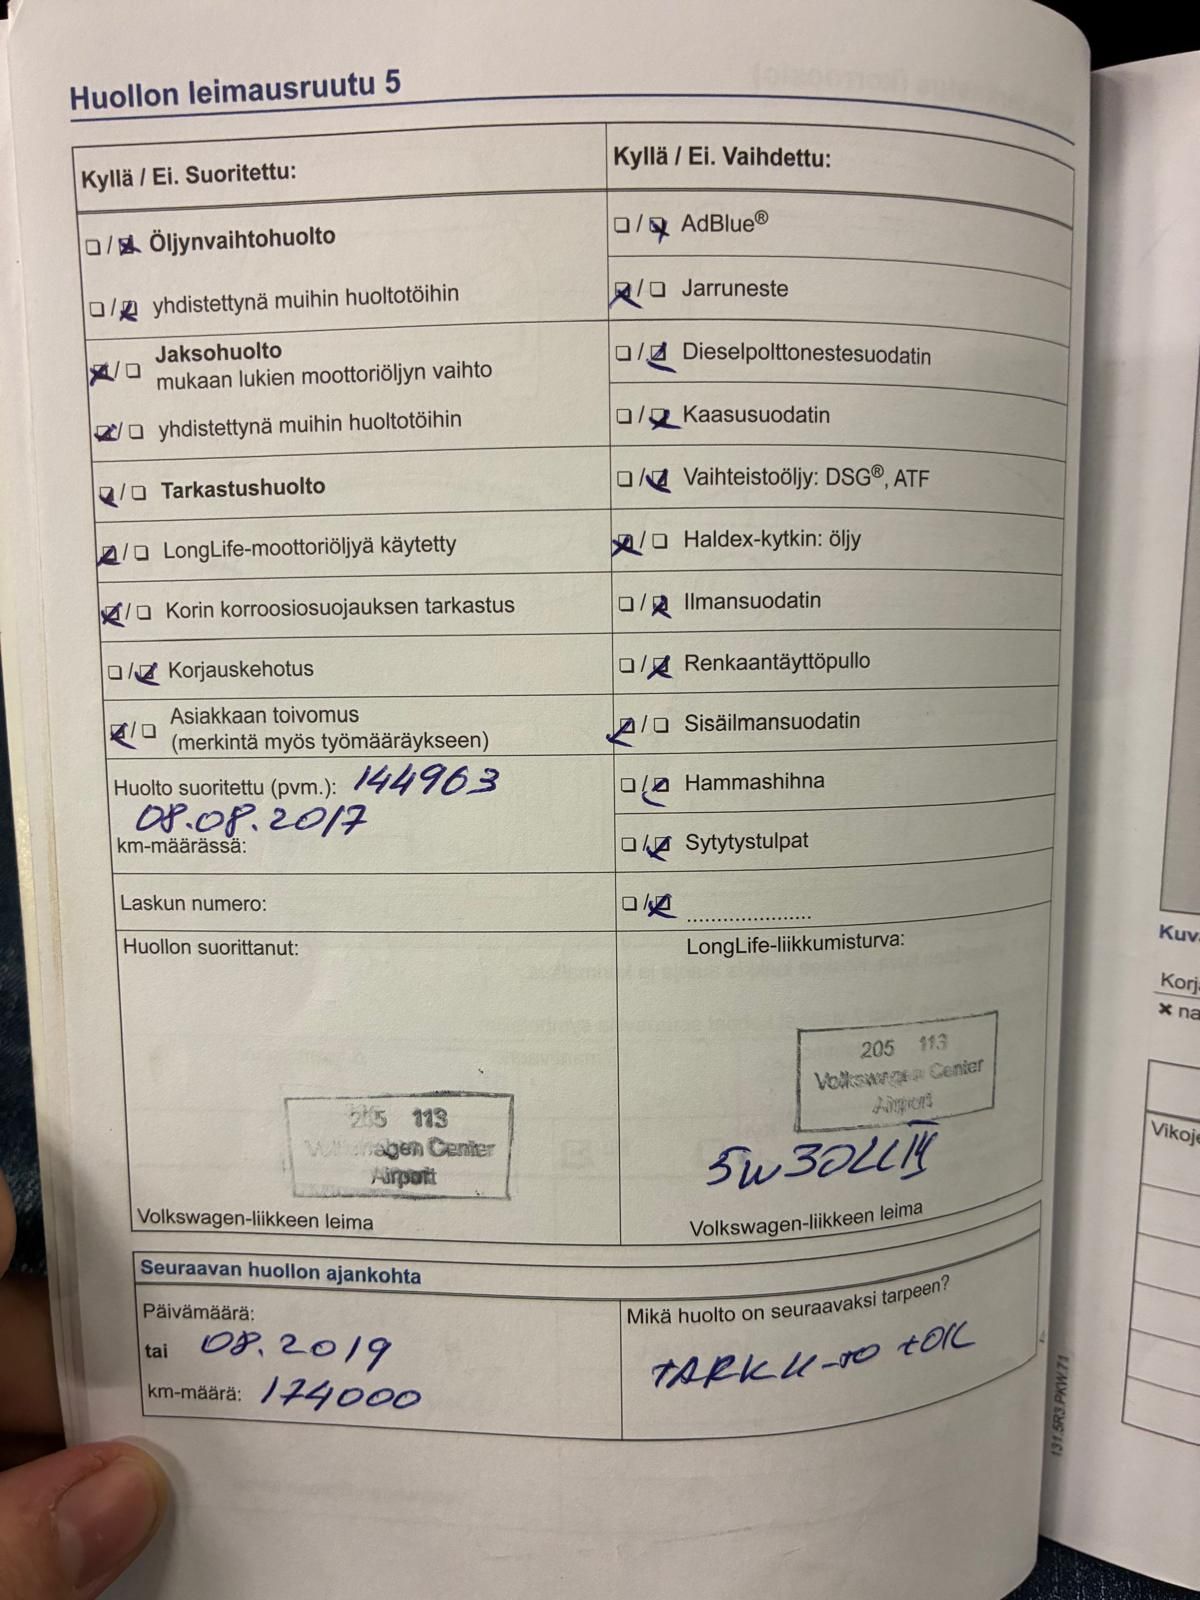 Huollon leimausruutu 5
Kyllä / Ei. Suoritettu:
Öljynvaihtohuolto
yhdistettynä muihin huoltotöihin
Jaksohuolto
mukaan lukien moottoriöljyn vaihto
yhdistettynä muihin huoltotöihin
Tarkastushuolto
LongLife-moottoriöljyä käytetty
Korin korroosiosuojauksen tarkastus
Korjauskehotus
Asiakkaan toivomus
(merkintä myös työmääräykseen)
Huolto suoritettu (pvm.): 144963
08.08.2017
km-määrässä:
Laskun numero:
Huollon suorittanut:
205 113
Volkswagen Center
Airport
Volkswagen-liikkeen leima
Kyllä / Ei. Vaihdettu:
AdBlue®
Jarruneste
Dieselpolttonestesuodatin
Kaasusuodatin
Vaihteistoöljy: DSG®, ATF
Haldex-kytkin: öljy
Ilmansuodatin
Renkaantäyttöpullo
Sisäilmansuodatin
Hammashihna
Sytytystulpat
.....................
LongLife-liikkumisturva:
205 113
Volkswagen Center
Airport
5W30LLIII
Volkswagen-liikkeen leima
Seuraavan huollon ajankohta
Päivämäärä:
tai 08.2019
km-määrä: 174000
Mikä huolto on seuraavaksi tarpeen?
131.5R3.PKW.71
Kuv
Korj
na
Vikoje